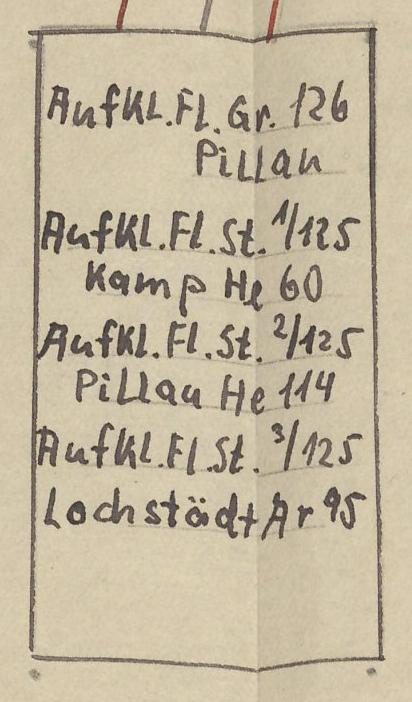 Aufkl.Fl.Gr. 126
Pillau
Aufkl.Fl.St. 1/125
Kamp He 60
Aufkl.Fl.St. 2/125
Pillau He 114
Aufkl.Fl.St. 3/125
Lochstädt Ar 95